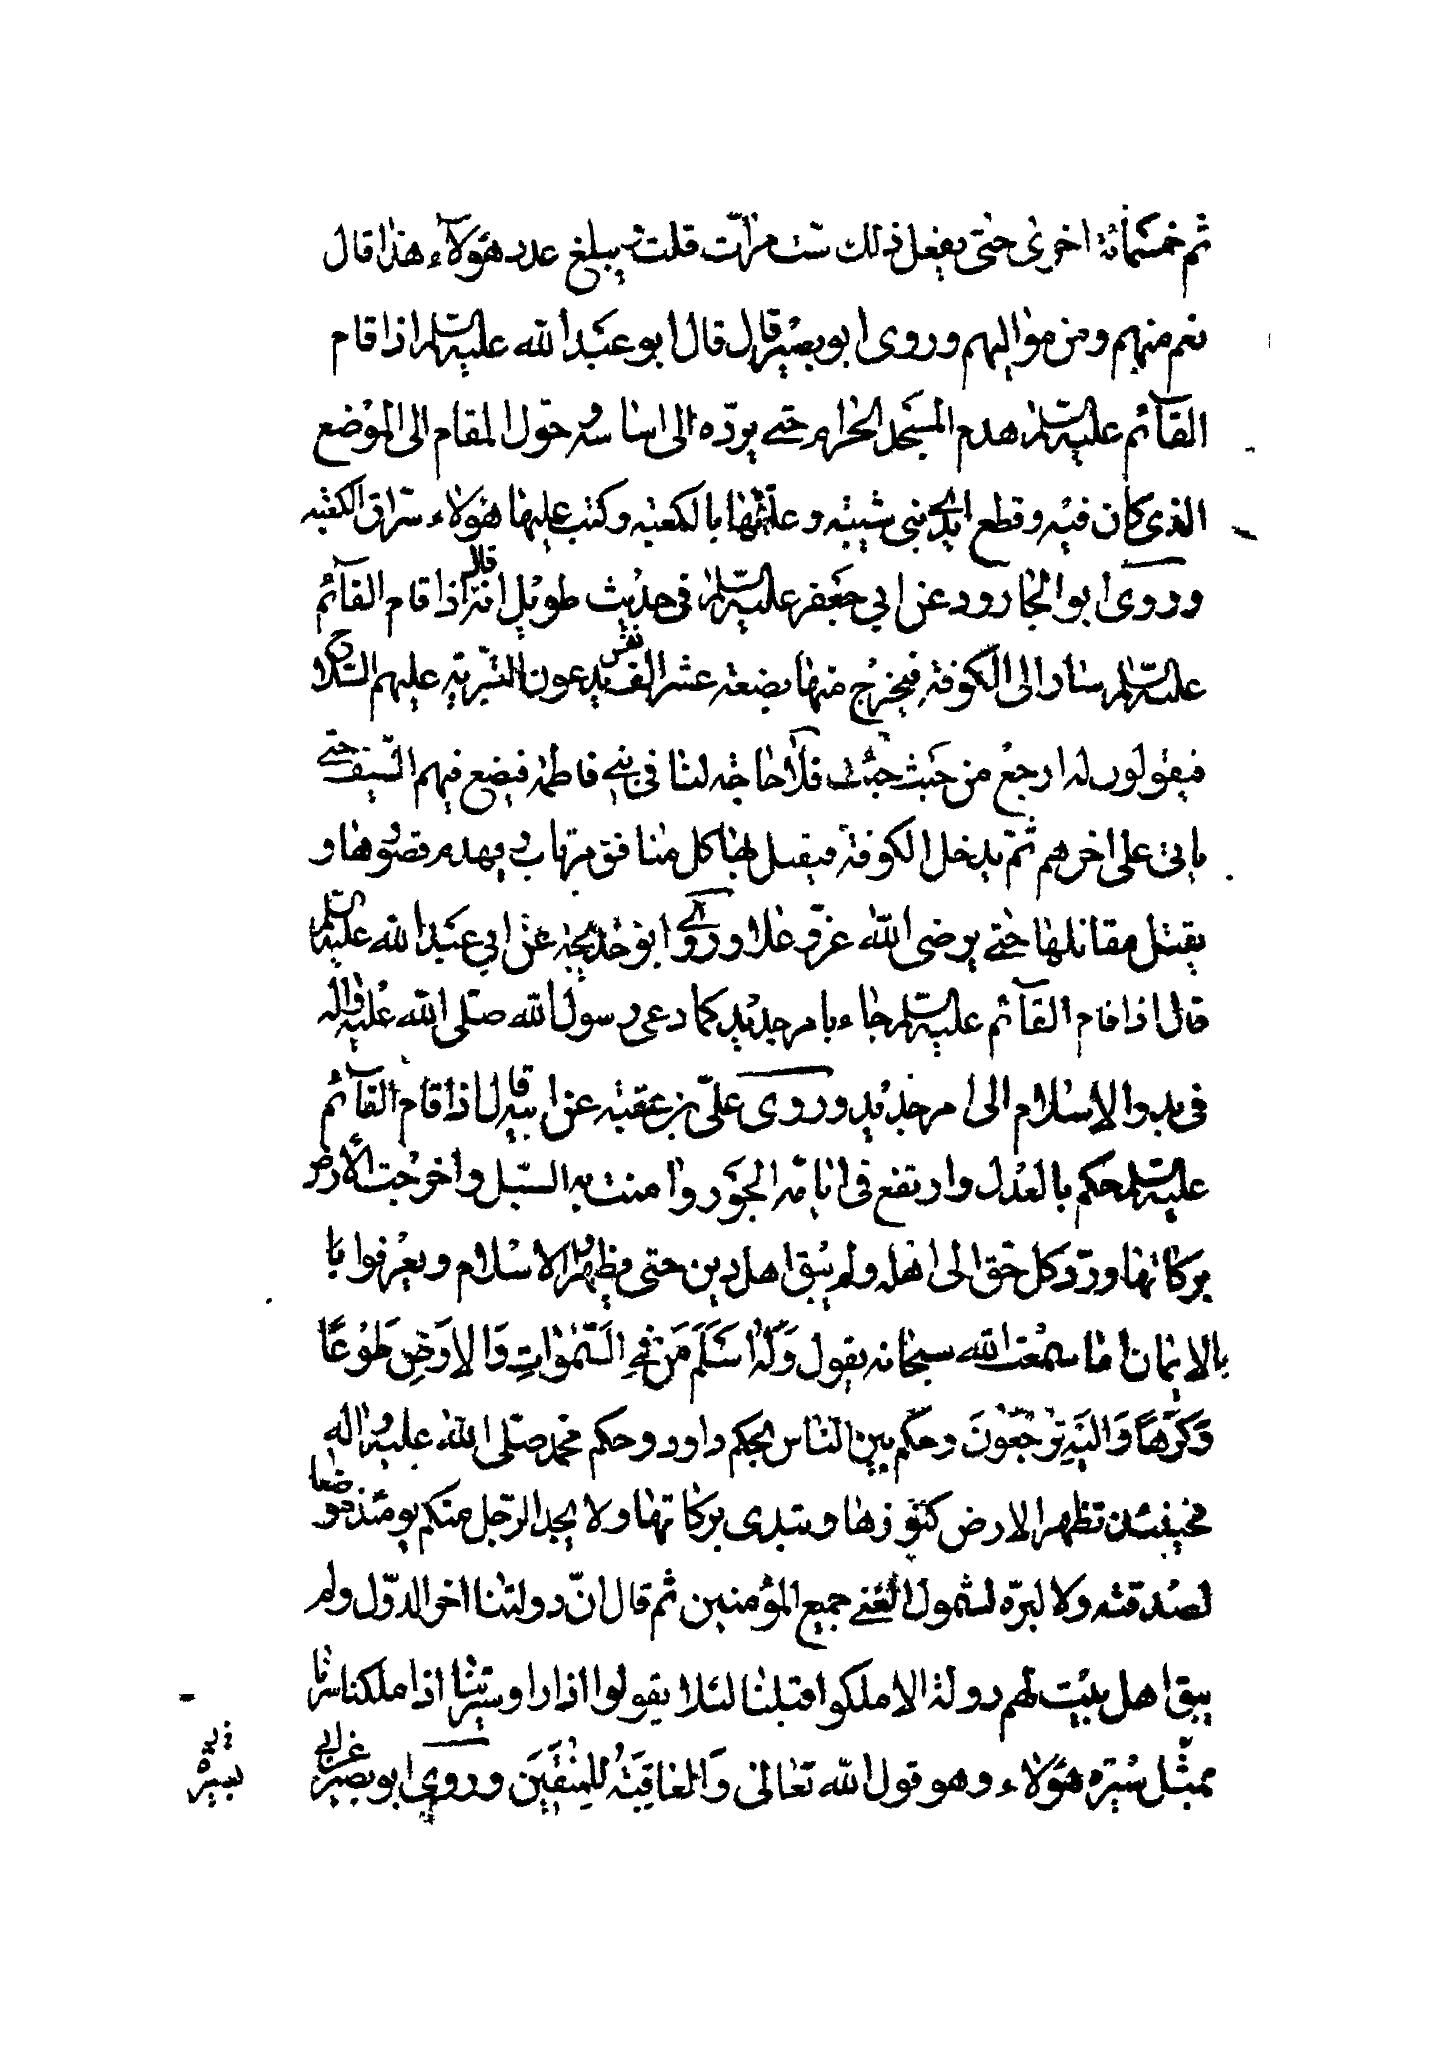 ثم خمسمائة اخرى حتى يفعل ذلك ست مرات قلت يبلغ عدد هؤلاء هذا قال
نعم منهم ومن مواليهم وروى ابو بصير قال قال ابو عبد الله عليه السلم اذا قام
القآئم عليه السلم هدم المسجد الحرام حتى يردّه الى اساسه وحوّل المقام الى الموضع
الذى كان فيه وقطع ايدى بنى شيبه وعلّقها بالكعبه وكتب عليها هؤلاء سرّاق الكعبه
وروى ابو الجارود عن ابي جعفر عليه السلم فى حديث طويل انه قال اذا قام القآئم
عليه السلم سار الى الكوفة فيخرج منها بضعة عشر الف نفس يدعون البتريّة عليهم السّلاح
فيقولون له ارجع من حيث جئت فلا حاجة لنا فى بنى فاطمة فيضع فيهم السّيف حتى
ياتى على اخرهم ثمّ يدخل الكوفة فيقتل بها كل منافق مرتاب ويهدم قصورها و
يقتل مقاتلها حتى يرضى الله عزّ وعلا وروى ابو خديجه عن ابي عبد الله عليه السلم
قال اذا قام القآئم عليه السلم جاء بامر جديد كما دعى رسول الله صلّى الله عليه واله
فى بدو الاسلام الى امر جديد وروى علىّ بن عقبه عن ابيه قال اذا قام القآئم
عليه السلم حكم بالعدل وارتفع فى ايامه الجور وامنت به السّبل واخرجت الارض
بركاتها وردّ كل حق الى اهله ولم يبق اهل دين حتى يظهروا الاسلام ويعرفوا با
بالايمان اما سمعت الله سبحانه يقول وَلَهُ اَسْلَمَ مَنْ فِى السَّمٰوٰاتِ وَالاَرْضِ طَوْعًا
وَكَرْهًا وَاليَهِ تُرْجَعُونَ وحكم بين النّاس بحكم داود وحكم محمد صلّى الله عليه واله
فحينئذ تظهر الارض كنوزها وتبدى بركاتها ولا يجد الرّجل منكم يومئذ موضعا
لصدقته ولا لبرّه لشمول الغنى جميع المؤمنين ثم قال انّ دولتنا اخر الدّول ولم
يبق اهل بيت لهم دولة الا ملكوا قبلنا لئلا يقولوا اذا راوا سيرتنا اذا ملكنا سرنا
بمثل سيرة هؤلاء وهو قول الله تعالى وَالعَاقِبَةُ لِلمُتَّقِينَ وروى ابو بصير عن ابى